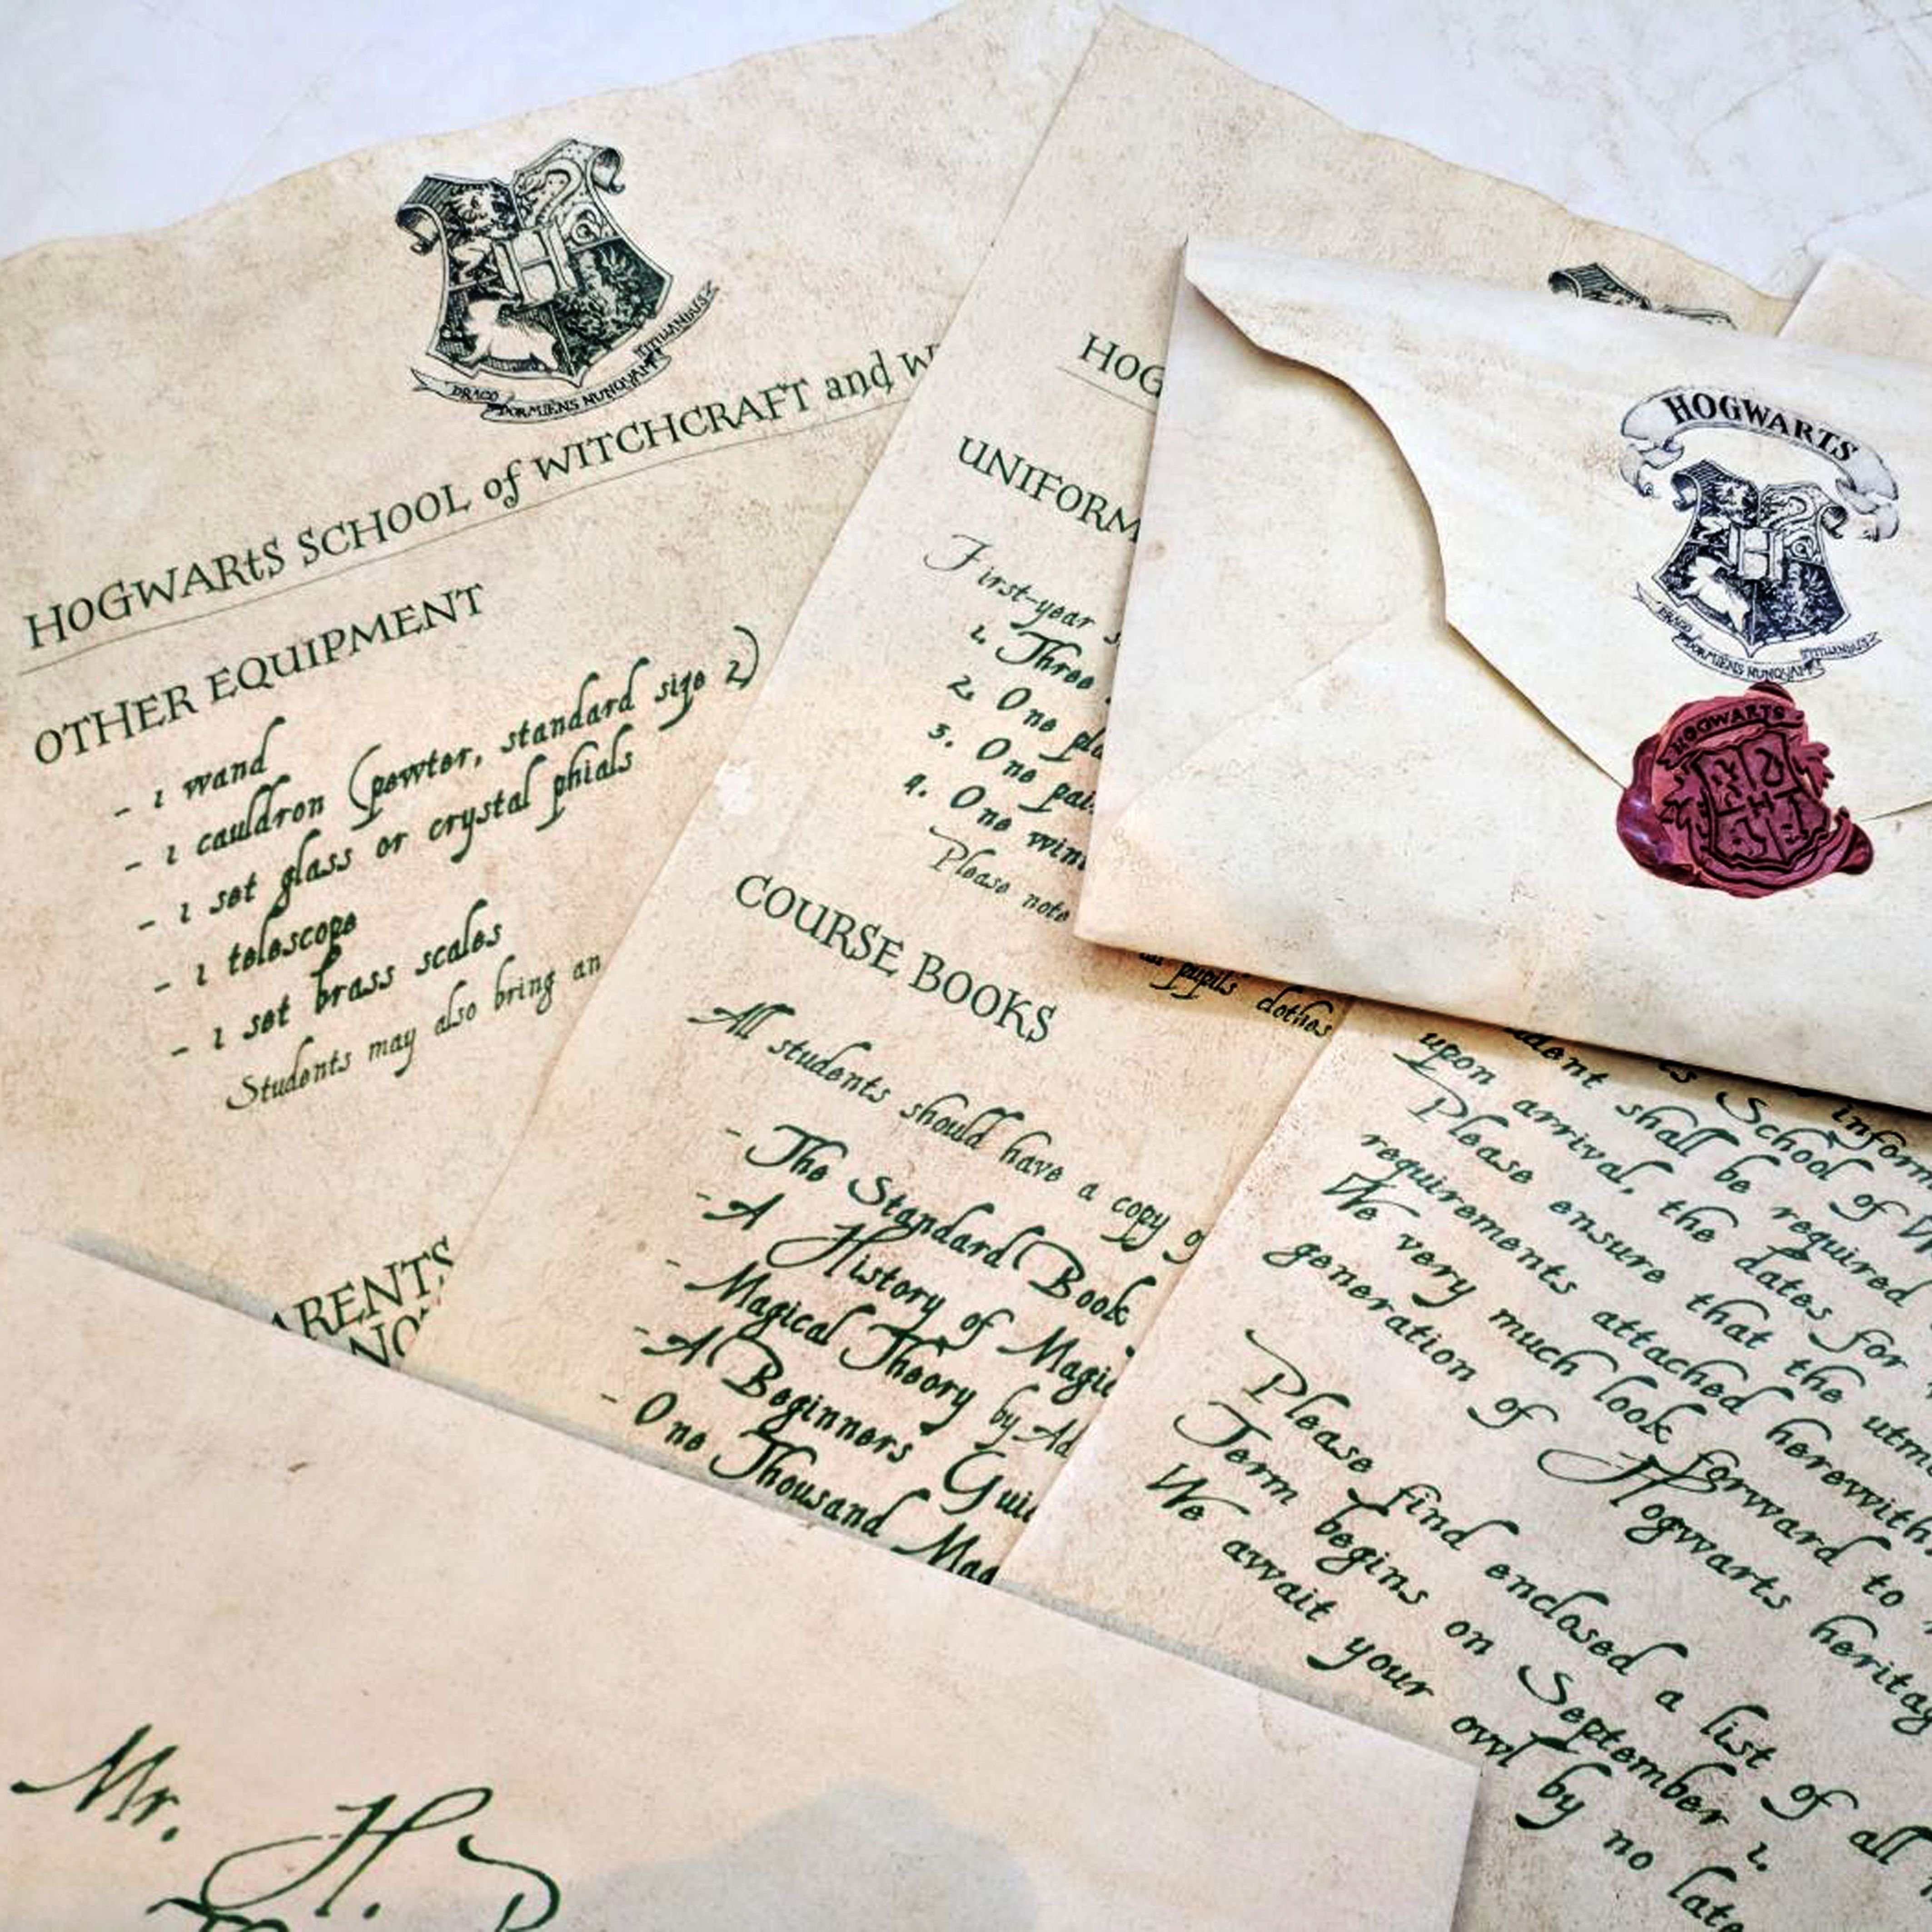 DRACO DORMIENS NUNQUAM TITILLANDUS
HOGWARtS SCHOOL of WITCHCRAFT and W
OTHER EQUIPMENT
- 1 wand
- 1 cauldron (pewter, standard size 2)
- 1 set glass or crystal phials
- 1 telescope
- 1 set brass scales
Students may also bring an
ARENTS
NO
HOG
UNIFORM
First-year s
1. Three
2. One pla
3. One pai
4. One wint
Please note
pupils' clothes
COURSE BOOKS
All students should have a copy o
- The Standard Book
- A History of Magic
- Magical Theory by Ad
- A Beginners Guid
- One Thousand Mag
HOGWARTS
DRACO DORMIENS NUNQUAM TITILLANDUS
HOGWARTS
H
inform
School of W
dent shall be required
upon arrival, the dates for
Please ensure that the utm
requirements attached herewith.
We very much look forward to
generation of Hogwarts heritag
Please find enclosed a list of all
Term begins on September 1.
We await your owl by no late
Mr. H.